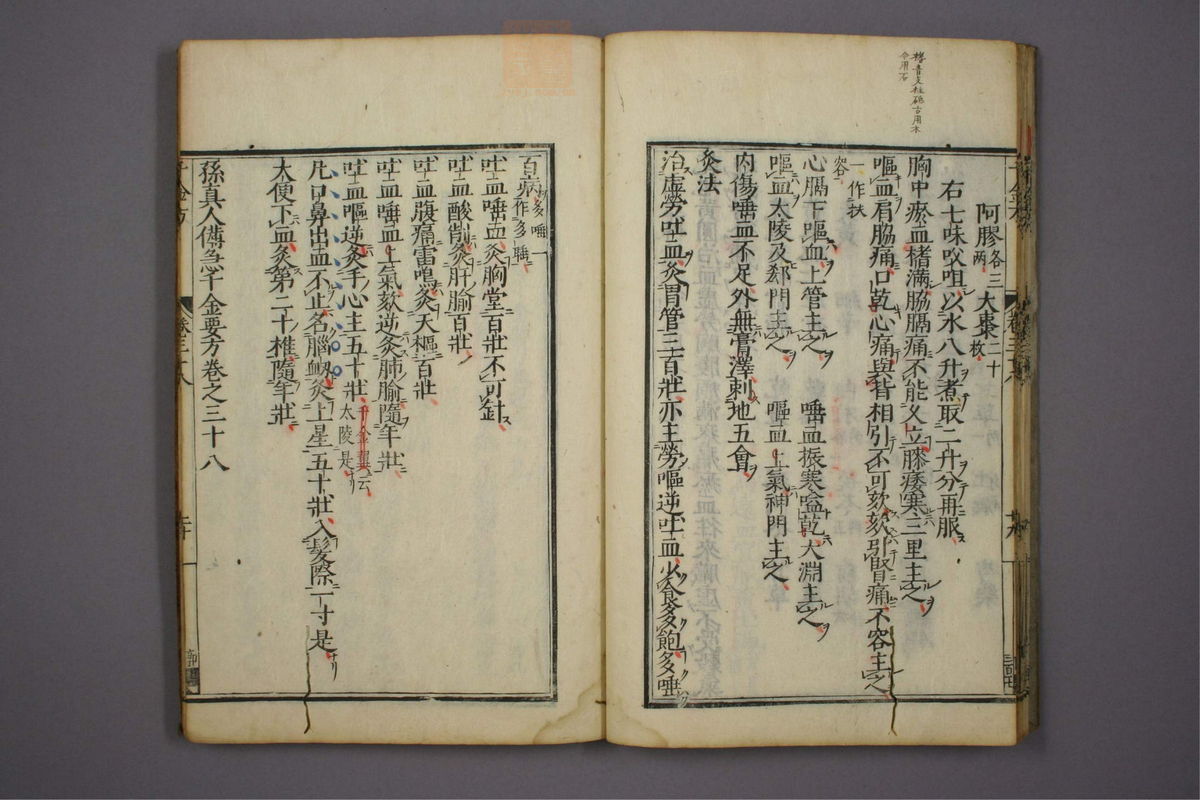 阿膠各三兩 大棗二十枚
右七味㕮咀以水八升煮取二升分再服
胸中瘀血榰滿脇膈痛不能久立膝痿寒三里主之
嘔血肩脇痛口乾心痛與背相引不可欬欬引腎痛不容主之
一作扶容
心膈下嘔血上管主之 唾血振寒嗌乾太淵主之
嘔血太陵及郄門主之 嘔血上氣神門主之
內傷唾血不足外無膏澤刺地五會
灸法
治虛勞吐血灸胃管三百壯亦主勞嘔逆吐血少食多飽多唾
百病所多唾一作多睡
吐血唾血灸胸堂百壯不可針
吐血酸削灸肝腧百壯
吐血腹痛雷鳴灸天樞百壯
吐血唾血上氣欬逆灸肺腧隨年壯
吐血嘔逆灸手心主五十壯千金翼云太陵是
凡口鼻出血不止名腦衄灸上星五十壯入髮際一寸是
大便下血灸第二十椎隨年壯
孫真人備急千金要方卷之三十八